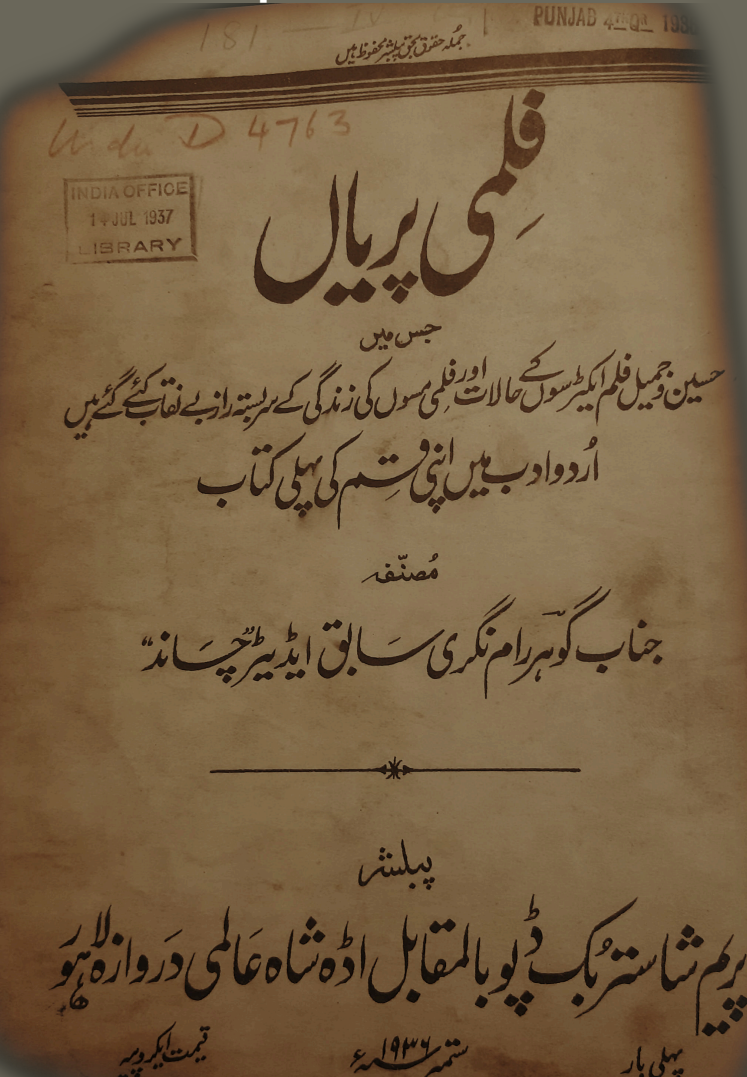 181 — IV
PUNJAB 4TH QR 193
جملہ حقوق بحق پبلشر محفوظ ہیں
Urdu D 4763
INDIA OFFICE
1 JUL 1937
LIBRARY
فلمی پریاں
جس میں
حسین و جمیل فلم ایکٹرسوں کے حالات اور فلمی مسوں کی زندگی کے سربستہ راز بے نقاب کئے گئے ہیں
اُردو ادب میں اپنی قِسم کی پہلی کتاب
مُصنّفہ
جناب گوہر رام نگری سابق ایڈیٹر "چاند"
پبلشر
پریم شاستر بُک ڈپو بالمقابل اڈہ شاہ عالمی دروازہ لاہور
پہلی بار
ستمبر ۱۹۳۶ء
قیمت ایکروپیہ